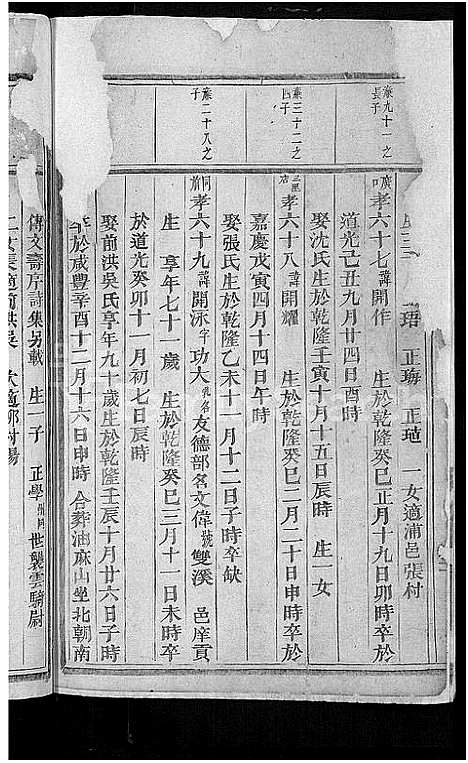 珸 正珻 正瑝 一女適浦邑張村
廉九十一之長子
孝六十七諱開作 生於乾隆癸巳正月十九日卯時卒於
道光己丑九月廿四日酉時
娶沈氏生於乾隆壬寅十月十五日辰時 生一女
廉三十二之四子
三里店孝六十八諱開耀 生於乾隆癸巳二月二十日申時卒於
嘉慶戊寅四月十四日午時
娶張氏生於乾隆乙未十一月十二日子時卒缺
廉二十八之子
同前孝六十九諱開泳字功大乳名友德部名文偉號雙溪 邑庠貢
生 享年七十一歲 生於乾隆癸巳三月十一日未時卒
於道光癸卯十一月初七日辰時
娶前洪吳氏享年九十歲生於乾隆壬辰十月廿六日子時
卒於咸豐辛酉十二月十六日申時 合葬油麻山坐北朝南
傳文壽序詩集另載 生一子 正學 世襲雲騎尉